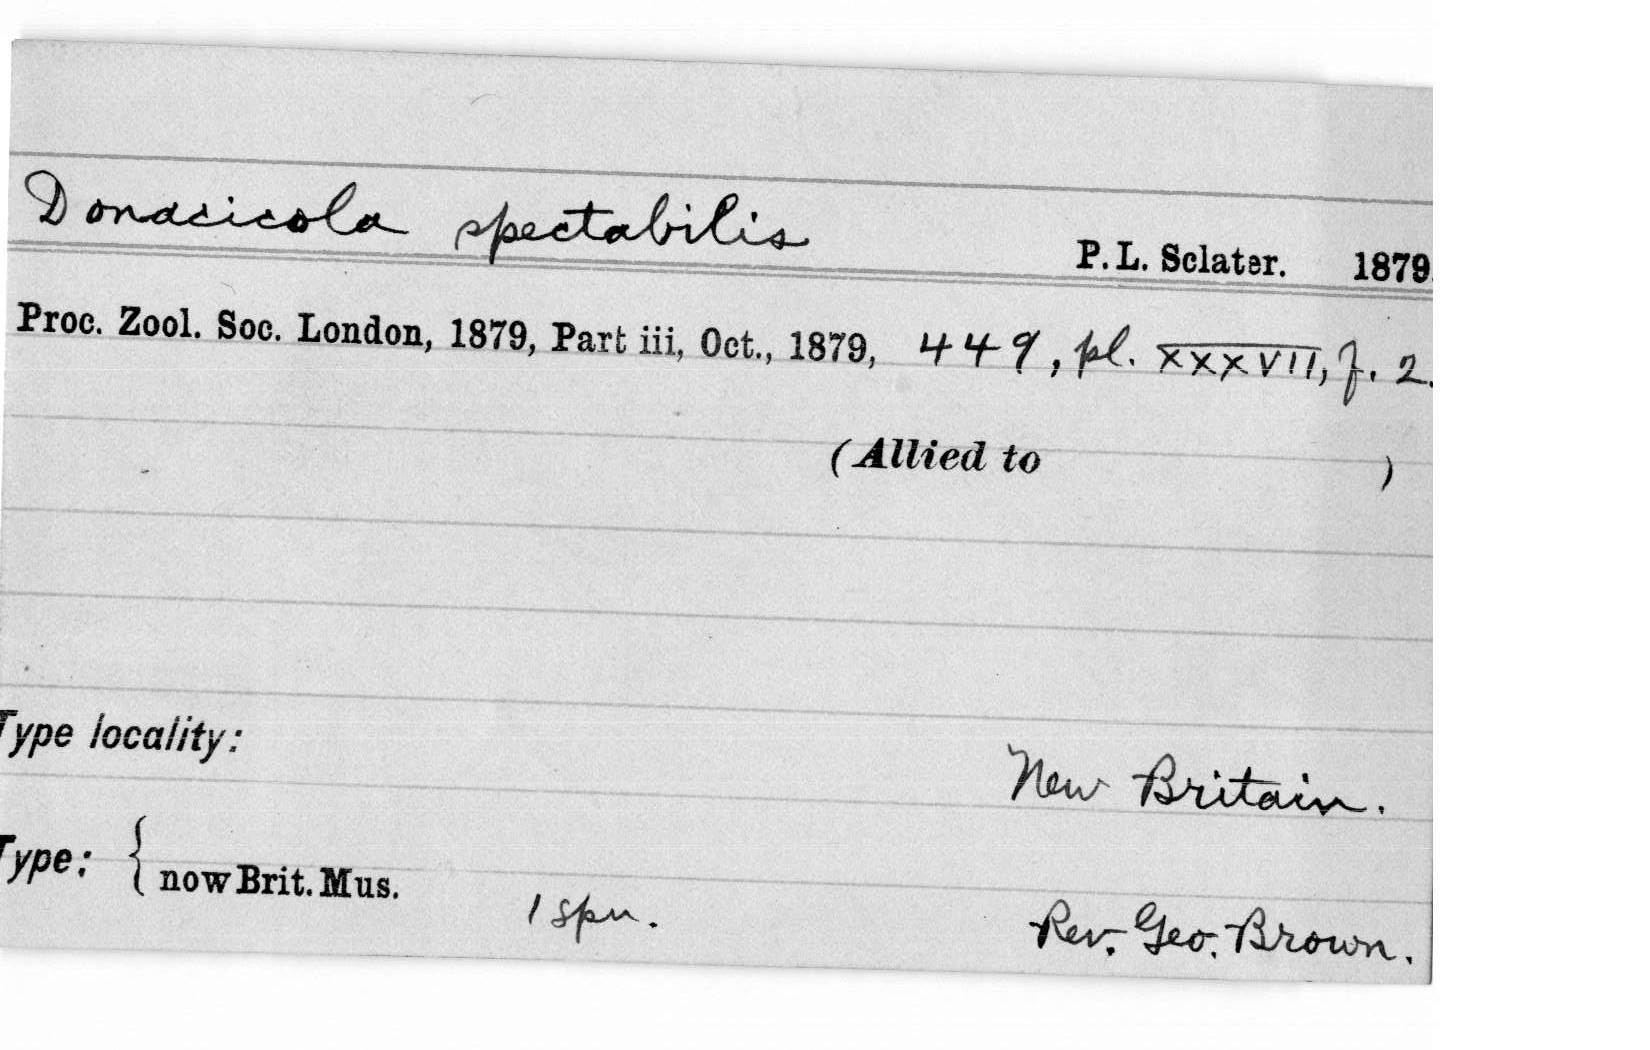 Donacicola spectabilis P. L. Sclater. 1879.
Proc. Zool. Soc. London, 1879, Part iii, Oct., 1879, 449, pl. XXXVII, f. 2.
(Allied to )
Type locality:
New Britain.
Type: { now Brit. Mus. 1 spn. Rev. Geo. Brown.